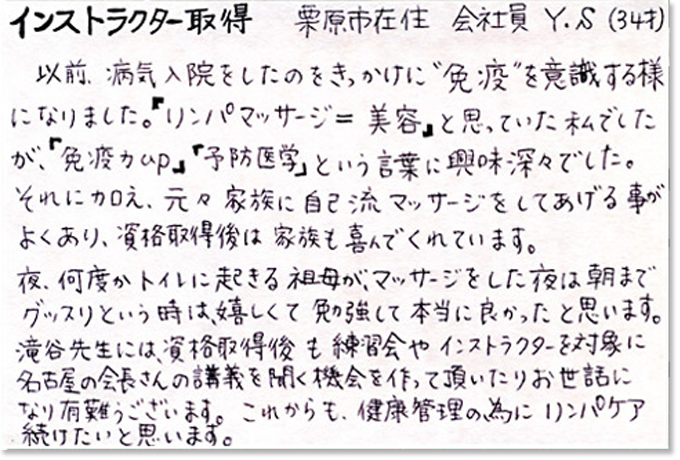 インストラクター取得　栗原市在住　会社員　Y.S (34才)
以前、病気入院をしたのをきっかけに"免疫"を意識する様
になりました。『リンパマッサージ＝美容』と思っていた私でした
が、『免疫力up』『予防医学』という言葉に興味深々でした。
それに加え、元々家族に自己流マッサージをしてあげる事が
よくあり、資格取得後は家族も喜んでくれています。
夜、何度かトイレに起きる祖母が、マッサージをした夜は朝まで
グッスリという時は、嬉しくて勉強して本当に良かったと思います。
滝谷先生には、資格取得後も練習会やインストラクターを対象に
名古屋の会長さんの講義を聞く機会を作って頂いたりお世話に
なり有難うございます。これからも、健康管理の為にリンパケア
続けたいと思います。